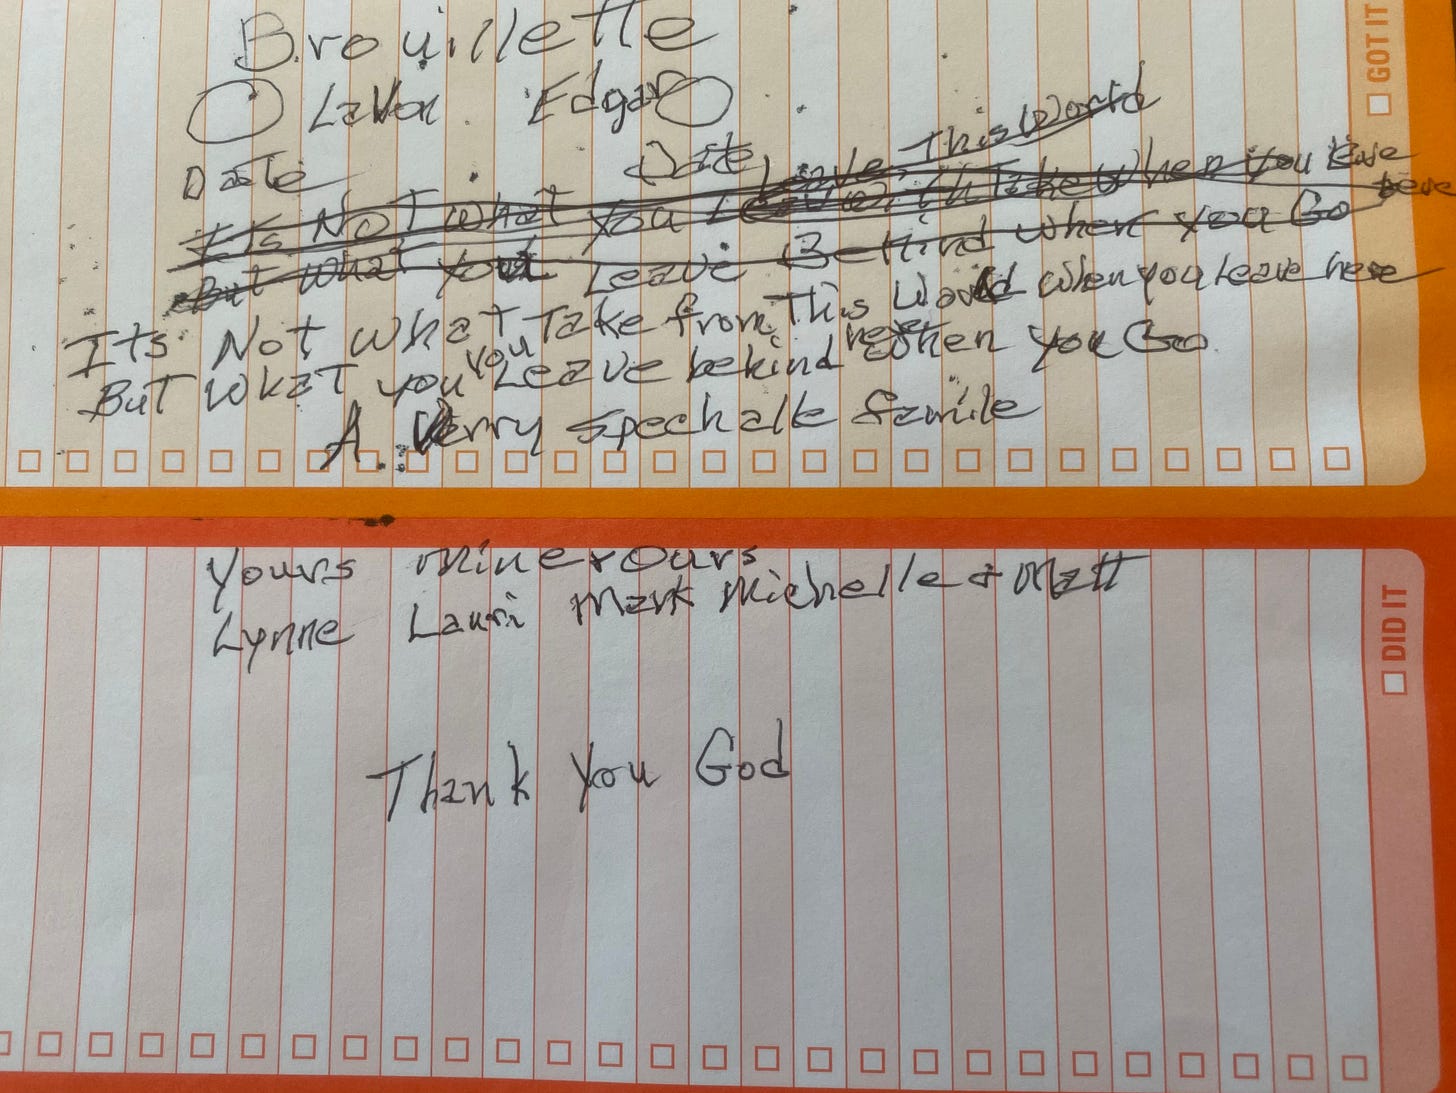 Brouillette
LaVon Edgar
Date Date
Leave This World
Its Not What You take When you Leave here
But What you Leave Behind when you Go
Its Not What Take from This World When you Leave here
you
But What you Leave bekind here When you Go
A. Verry spechalle famile
Yours Mine + Ours
Lynne Lauri Mark Michelle + Matt
Thank You God
GOT IT
DID IT